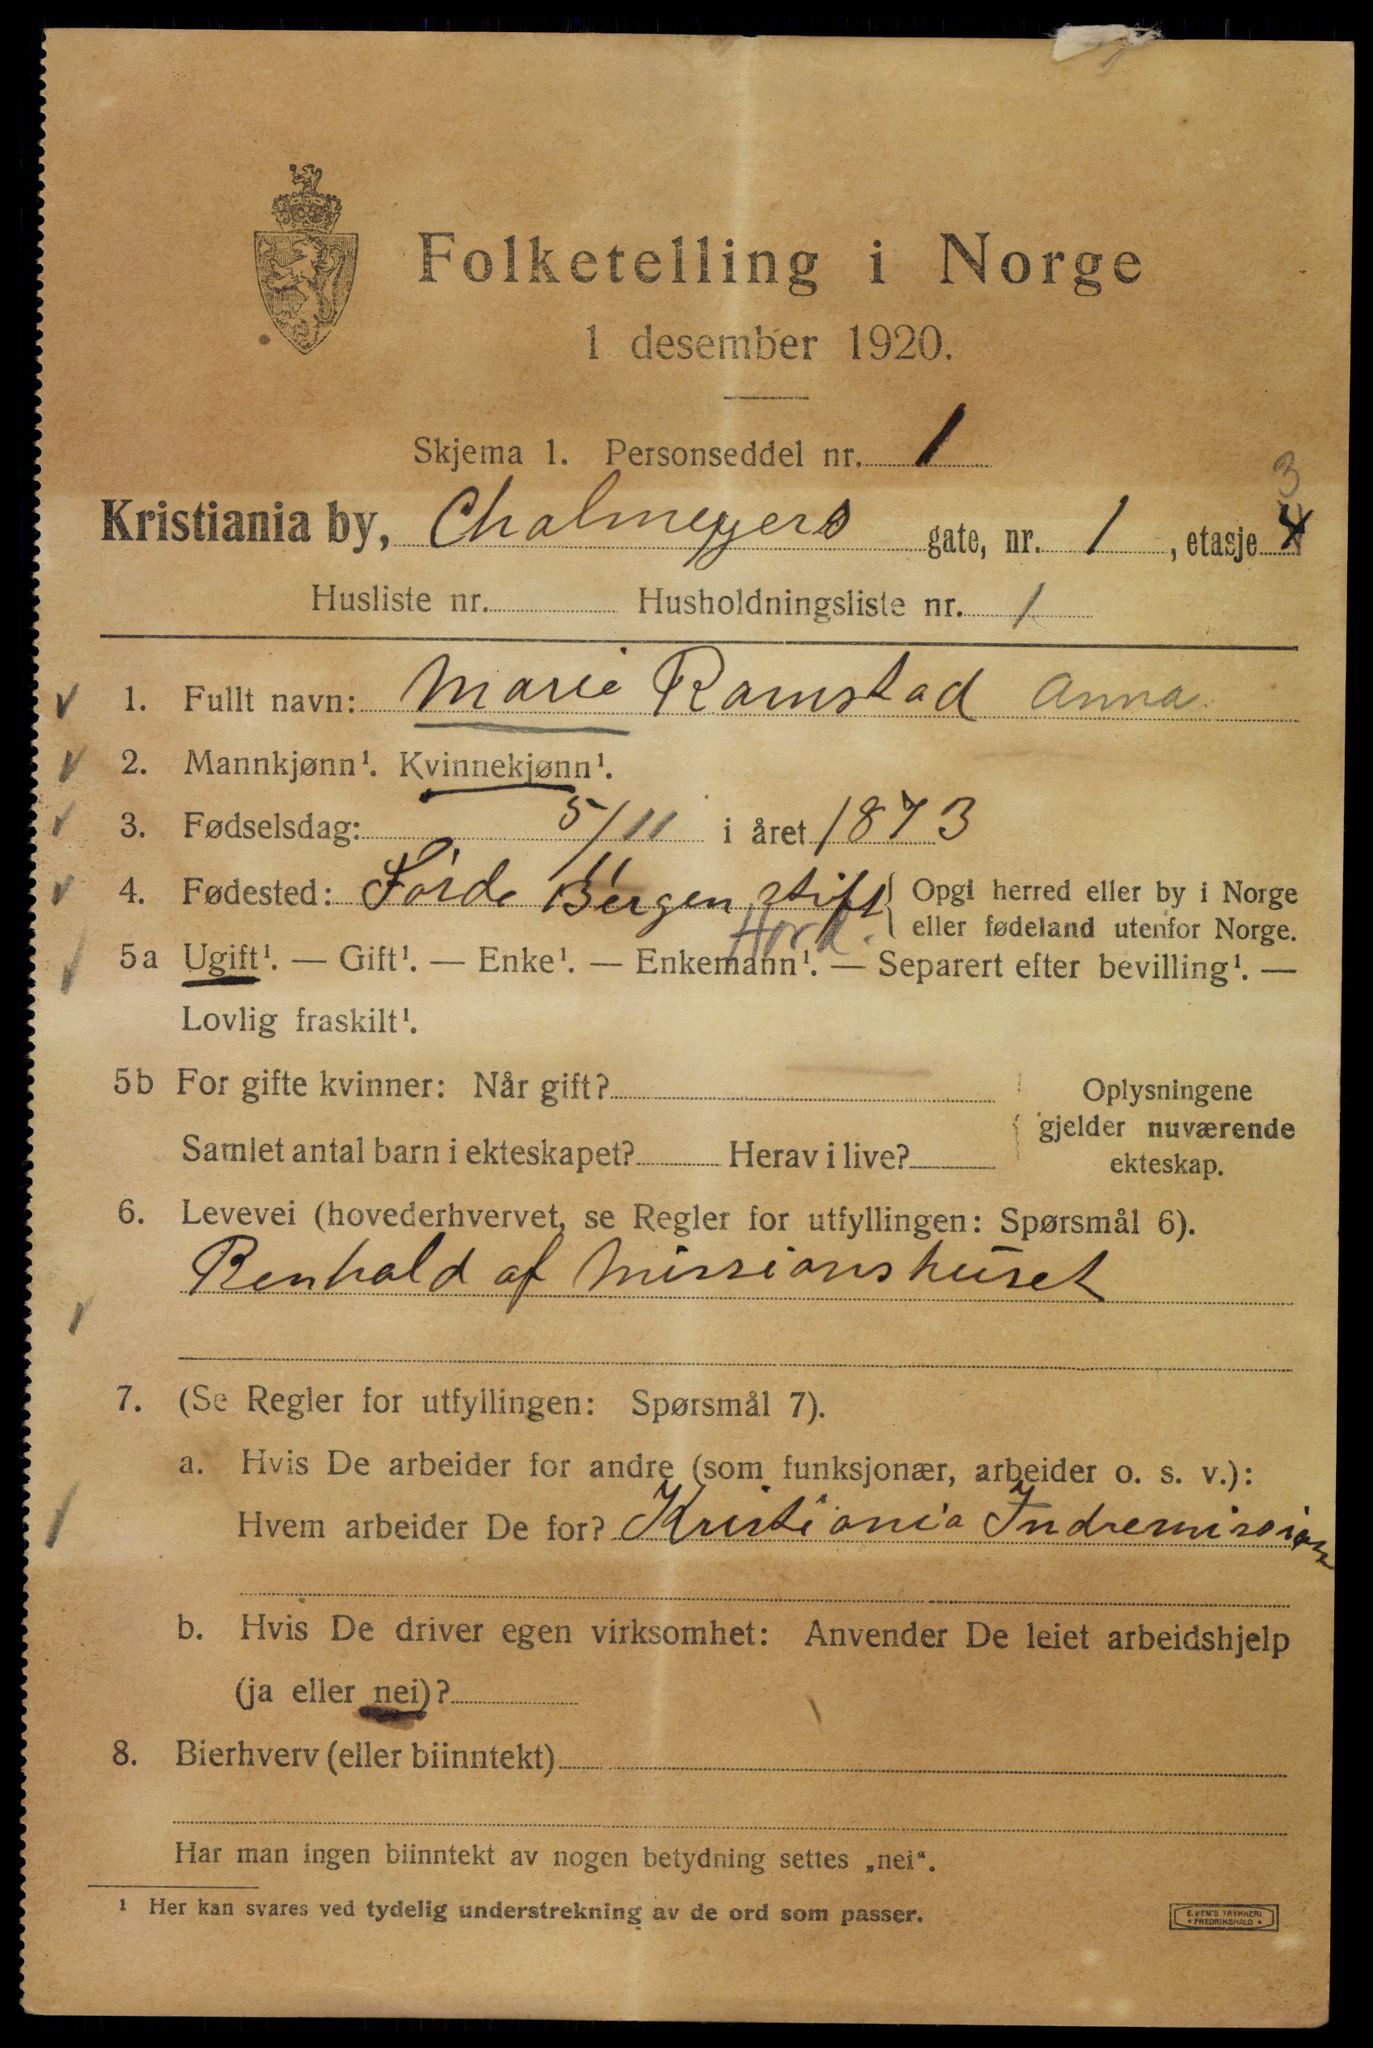 Folketelling i Norge
1 desember 1920.
Skjema 1. Personseddel nr. 1
3
Kristiania by, Chalmeyers gate, nr. 1, etasje 4
Husliste nr. Husholdningsliste nr. 1
1. Fullt navn: Marie Ramstad Anna
2. Mannkjønn¹. Kvinnekjønn¹.
3. Fødselsdag: 5/11 i året 1873
4. Fødested: Förde Bergen stift { Opgi herred eller by i Norge
eller fødeland utenfor Norge.
Hord.
5a Ugift¹. — Gift¹. — Enke¹. — Enkemann¹. — Separert efter bevilling¹. —
Lovlig fraskilt¹.
5b For gifte kvinner: Når gift?
Samlet antal barn i ekteskapet? Herav i live?
{ Oplysningene
gjelder nuværende
ekteskap.
6. Levevei (hovederhvervet, se Regler for utfyllingen: Spørsmål 6).
Renhold af Missionshuset
7. (Se Regler for utfyllingen: Spørsmål 7).
a. Hvis De arbeider for andre (som funksjonær, arbeider o. s. v.):
Hvem arbeider De for? Kristiania Indremission
b. Hvis De driver egen virksomhet: Anvender De leiet arbeidshjelp
(ja eller nei)?
8. Bierhverv (eller biinntekt)
Har man ingen biinntekt av nogen betydning settes „nei“.
¹ Her kan svares ved tydelig understrekning av de ord som passer.
E. WEM'S TRYKKERI
* FREDRIKSHALD *